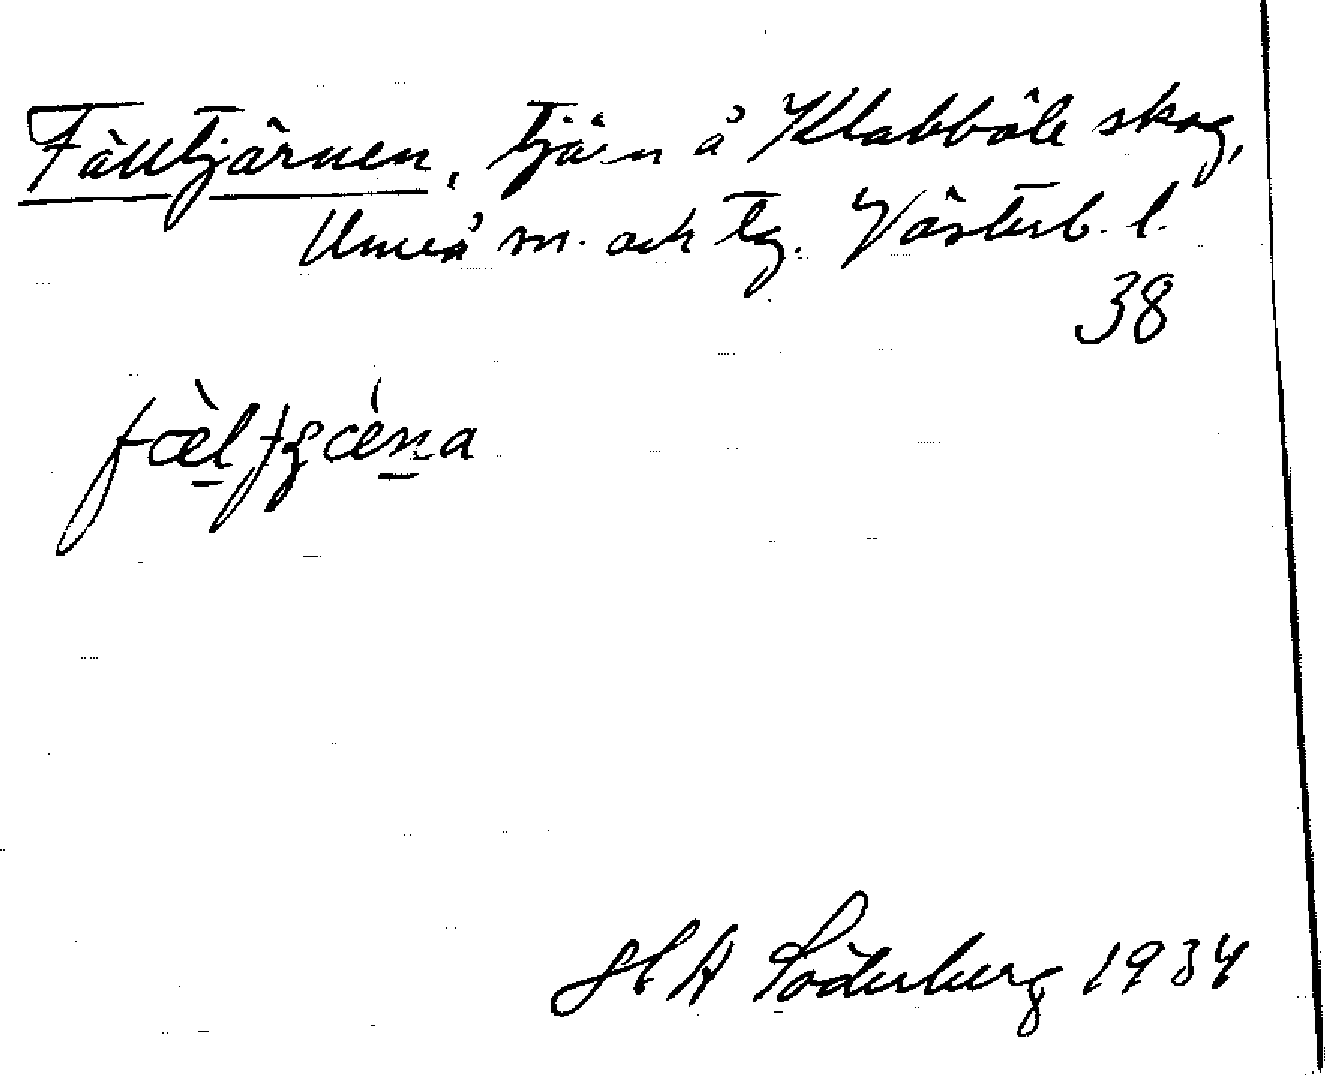 Fälltjärnen, tjärn å Klabböle skog,
Umeå sn. och tg. Västerb. l.
38
H A Söderberg 1934